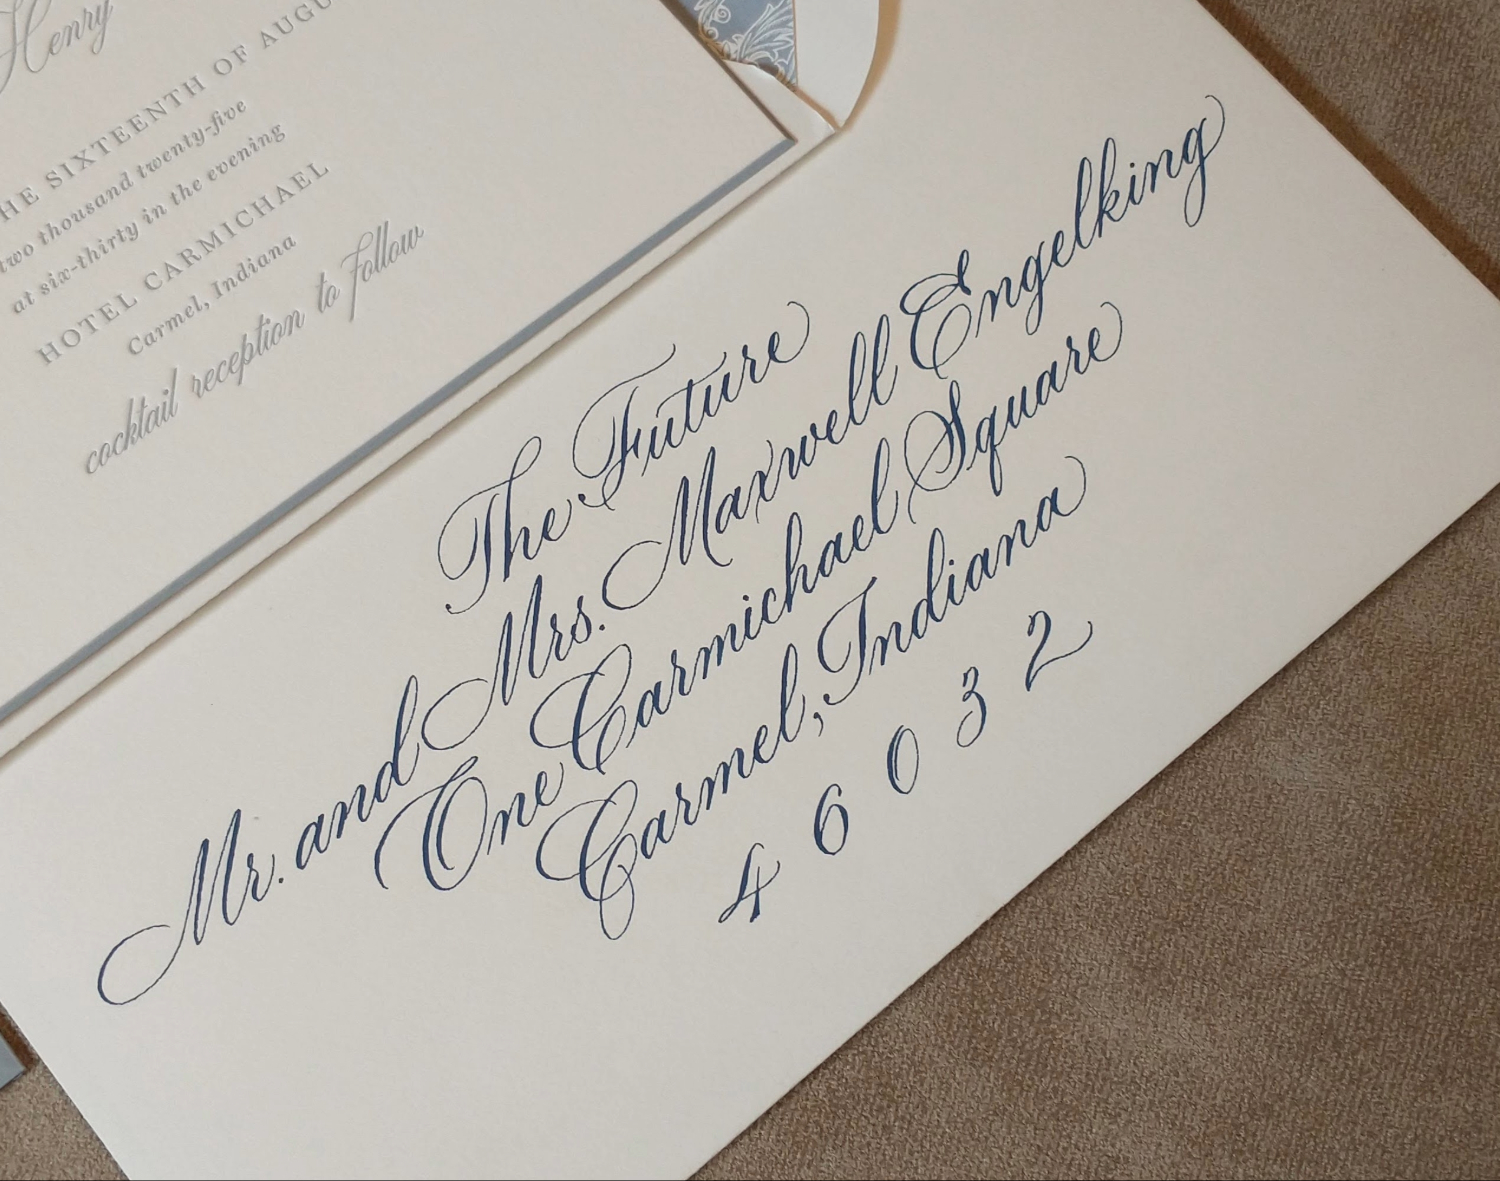 Henry
HE SIXTEENTH OF AUGU
two thousand twenty-five
at six-thirty in the evening
HOTEL CARMICHAEL
Carmel, Indiana
cocktail reception to follow
The Future
Mr. and Mrs. Maxwell Engelking
One Carmichael Square
Carmel, Indiana
4 6 0 3 2